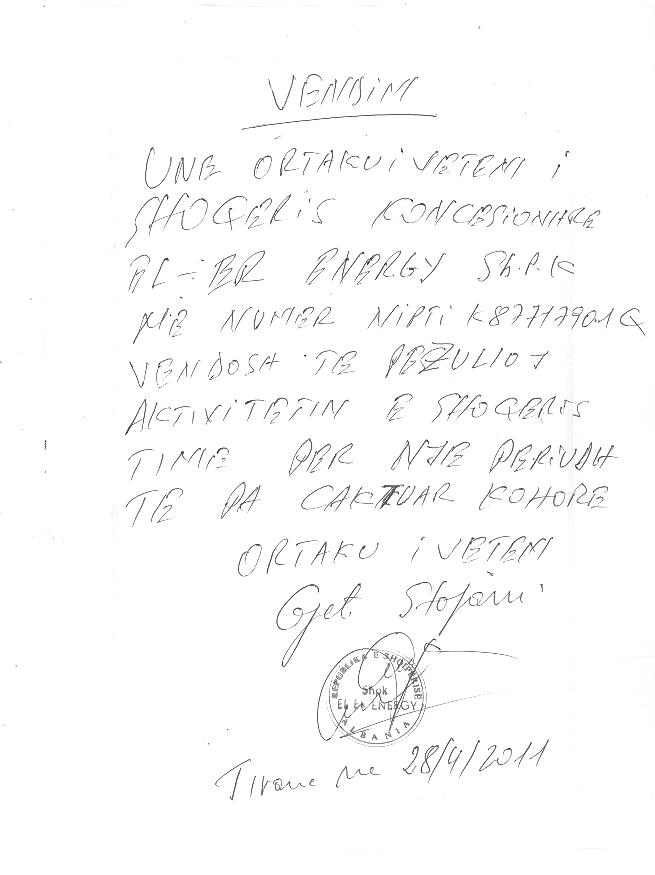 VENDIM
UNE ORTAKU i VETEM i
SHOQERIS KONCESIONARE
EL-ER ENERGY Sh.P.K
ME NUMER NIPTI K87717901Q
VENDOSA TE PEZULLOJ
AKTIVITETIN E SHOQERIS
TIME PER NJE PERIUDH
TE PA CAKTUAR KOHORE
ORTAKU i VETEM
Gjet Stojani
REPUBLIKA E SHQIPERISE
Shpk
ENERGY
ALBANIA
Tirane me 28/4/2011